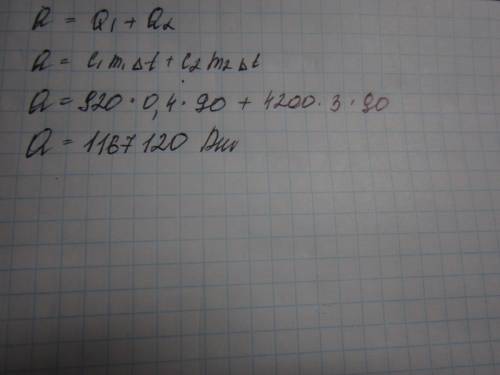 Q = Q₁ + Q₂
Q = c₁m₁Δt + c₂m₂Δt
Q = 920 · 0,4 · 90 + 4200 · 3 · 90
Q = 1167120 Дж